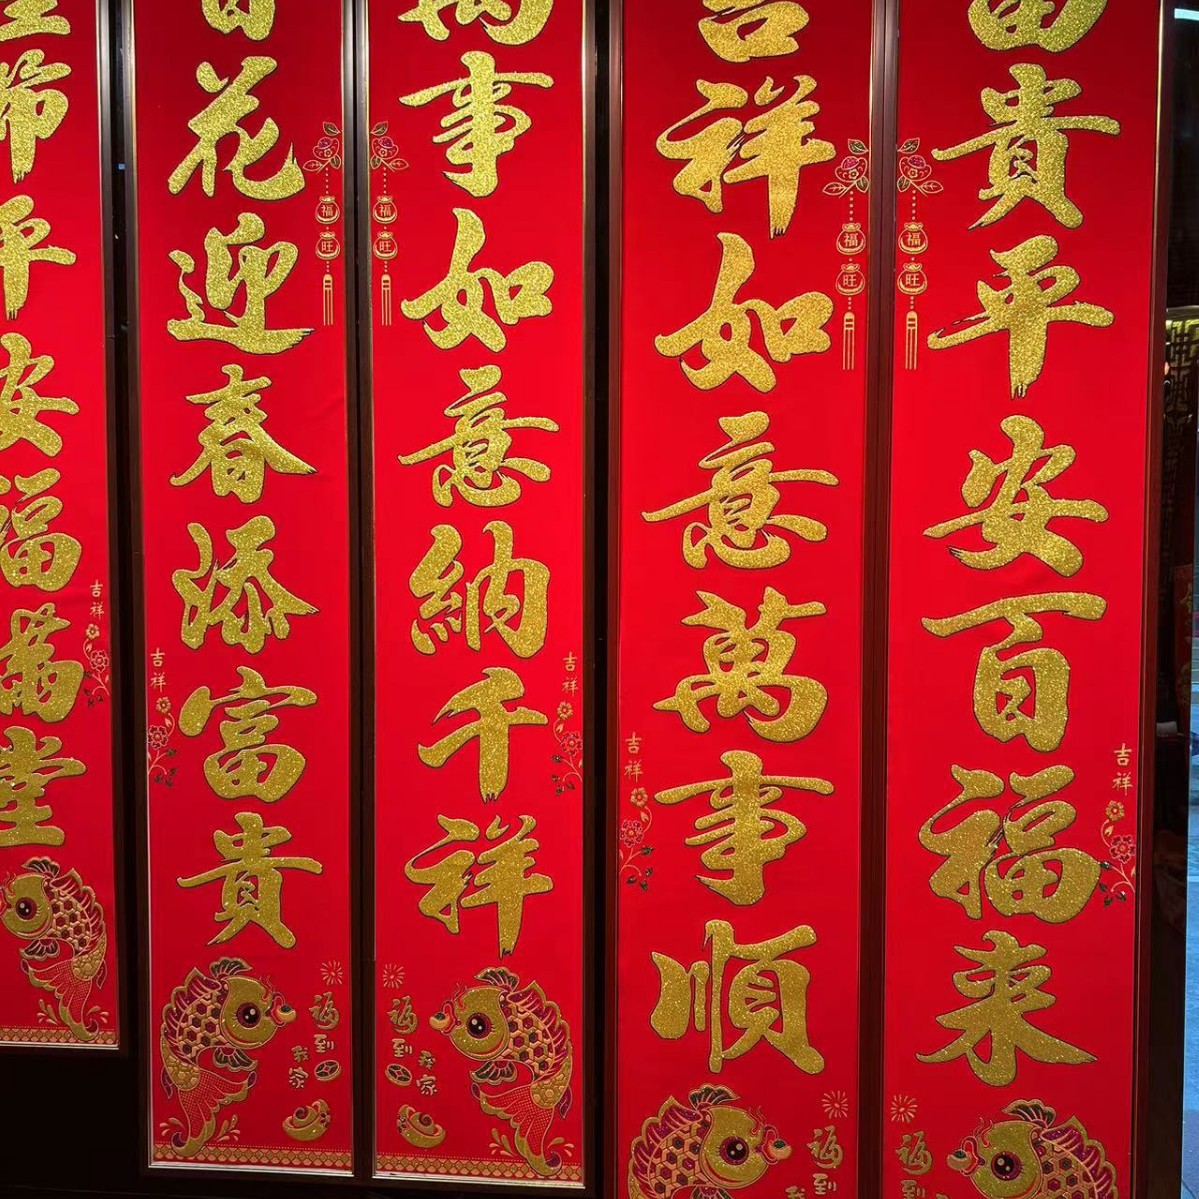 富貴平安百福来
吉祥如意萬事順
萬事如意納千祥
百花迎春添富貴
節平安福滿堂
福
旺
福
旺
福
旺
福
旺
吉祥
吉祥
吉祥
吉祥
吉祥
福到
福到
福到我家
福到我家